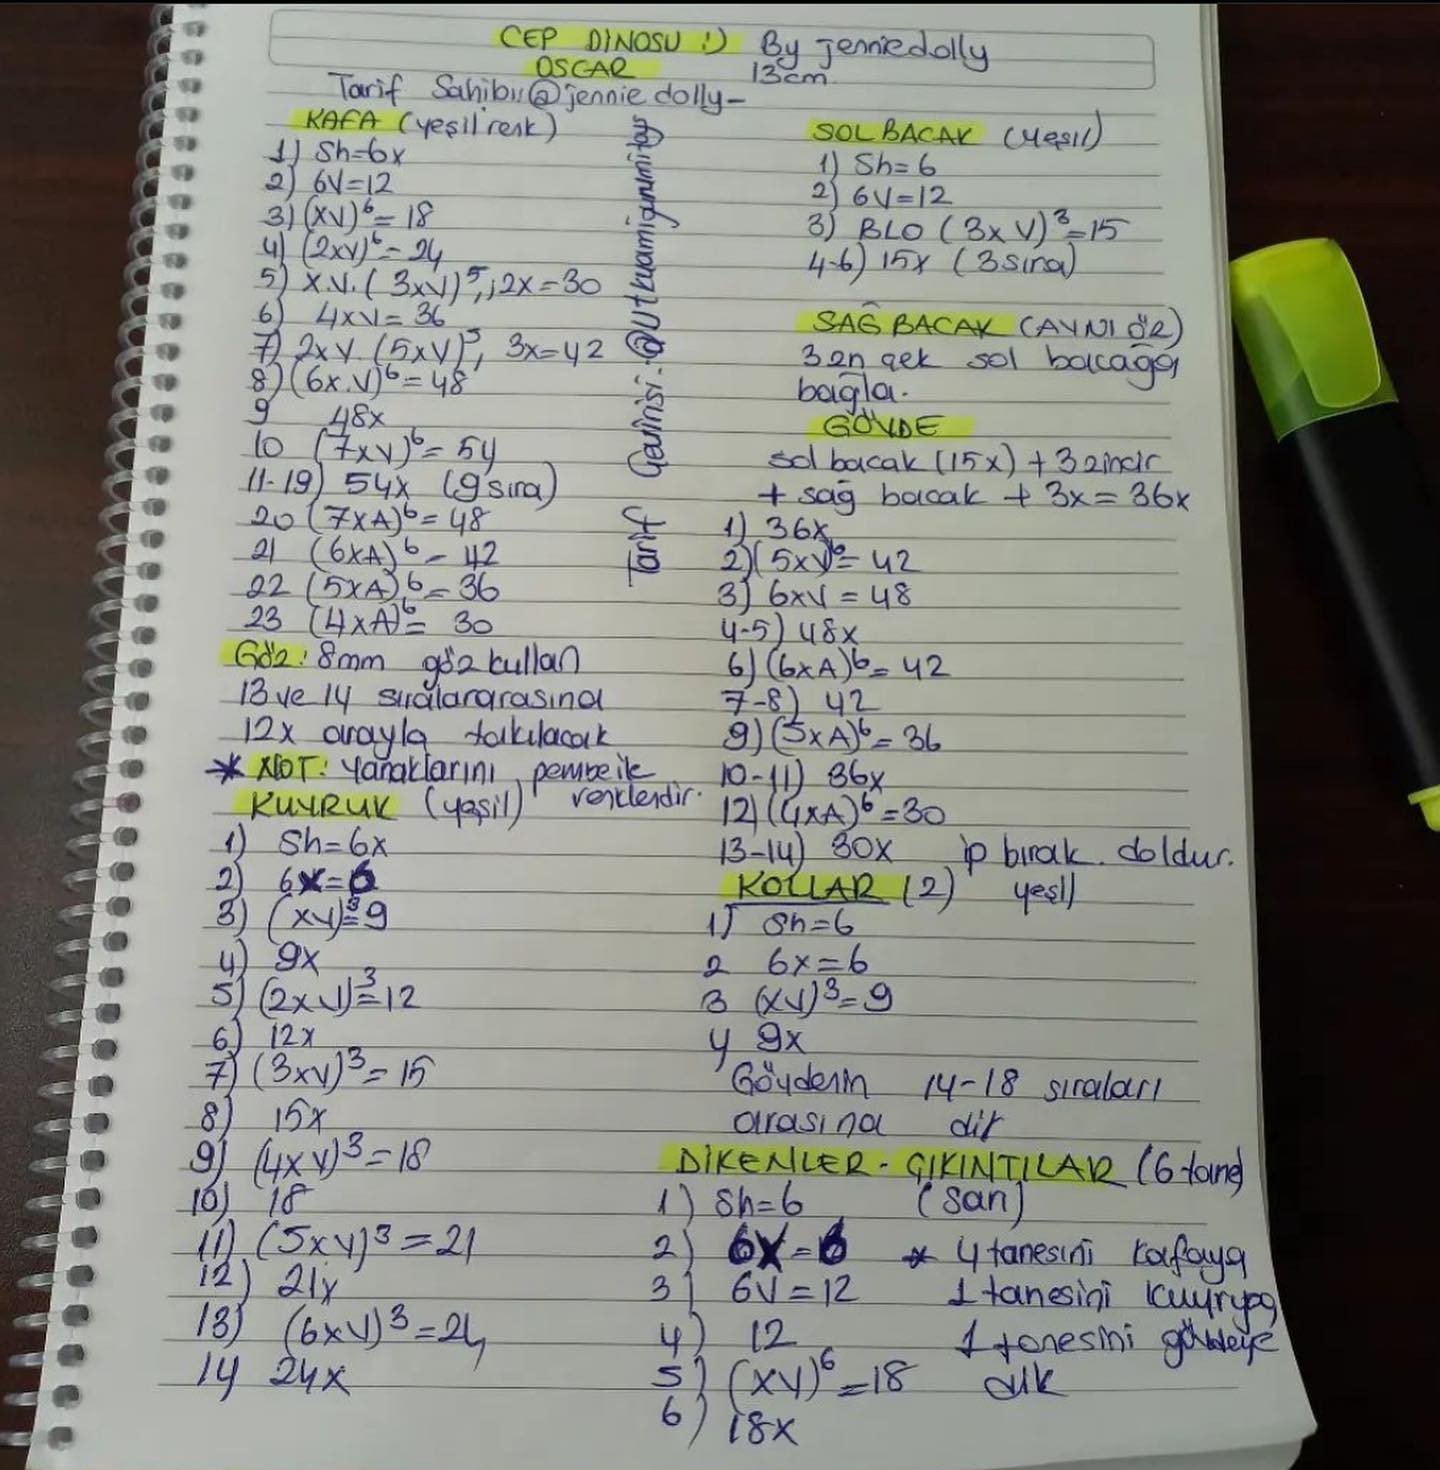 CEP DİNOSU :) By jenniedolly
OSCAR 13cm
Tarif Sahibi: @jenniedolly-
KAFA (yeşil renk)
1) Sh=6x
2) 6V=12
3) (xV)⁶=18
4) (2xV)⁶=24
5) x.V.(3xV)⁵,;2x=30
6) 4xV=36
7) 2xV.(5xV)⁵, 3x=42
8) (6x.V)⁶=48
9 48x
10 (7xV)⁶=54
11-19) 54x (9 sıra)
20 (7xA)⁶=48
21 (6xA)⁶=42
22 (5xA)⁶=36
23 (4xA)⁶=30
Göz: 8mm göz kullan
13 ve 14 sıralararasına
12x arayla takılacak
* NOT: Yanaklarını pembe ile
renklendir.
KUYRUK (yeşil)
1) Sh=6x
2) 6x=6
3) (xV)³=9
4) 9x
5) (2xV)³=12
6) 12x
7) (3xV)³=15
8) 15x
9) (4xV)³=18
10) 18
11) (5xV)³=21
12) 21x
13) (6xV)³=24
14 24x
Tarif Gelinisi: @Utkuamigurumitoys
SOL BACAK (yeşil)
1) Sh=6
2) 6V=12
3) BLO (3xV)³=15
4-6) 15x (3 sıra)
SAĞ BACAK (AYNI ÖR)
3 zn çek sol bacağa
bağla.
GÖVDE
sol bacak (15x) + 3 zincir
+ sağ bacak + 3x = 36x
1) 36x
2) (5xV)⁶=42
3) 6xV=48
4-5) 48x
6) (6xA)⁶=42
7-8) 42
9) (5xA)⁶=36
10-11) 36x
12) (4xA)⁶=30
13-14) 30x ip bırak. doldur.
KOLLAR (2) yeşil
1) Sh=6
2 6x=6
3 (xV)³=9
4 9x
Gövdenin 14-18 sıraları
arasına dik
DİKENLER - ÇIKINTILAR (6 tane)
(sarı)
1) Sh=6
2) 6X=6 * 4 tanesini kafaya
3) 6V=12 1 tanesini kuyruğa
4) 12 1 tanesini gövdeye
5) (xV)⁶=18 dik
6) 18x